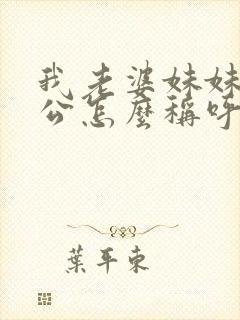 我老婆妹妹
公怎麼稱呼
葉平東